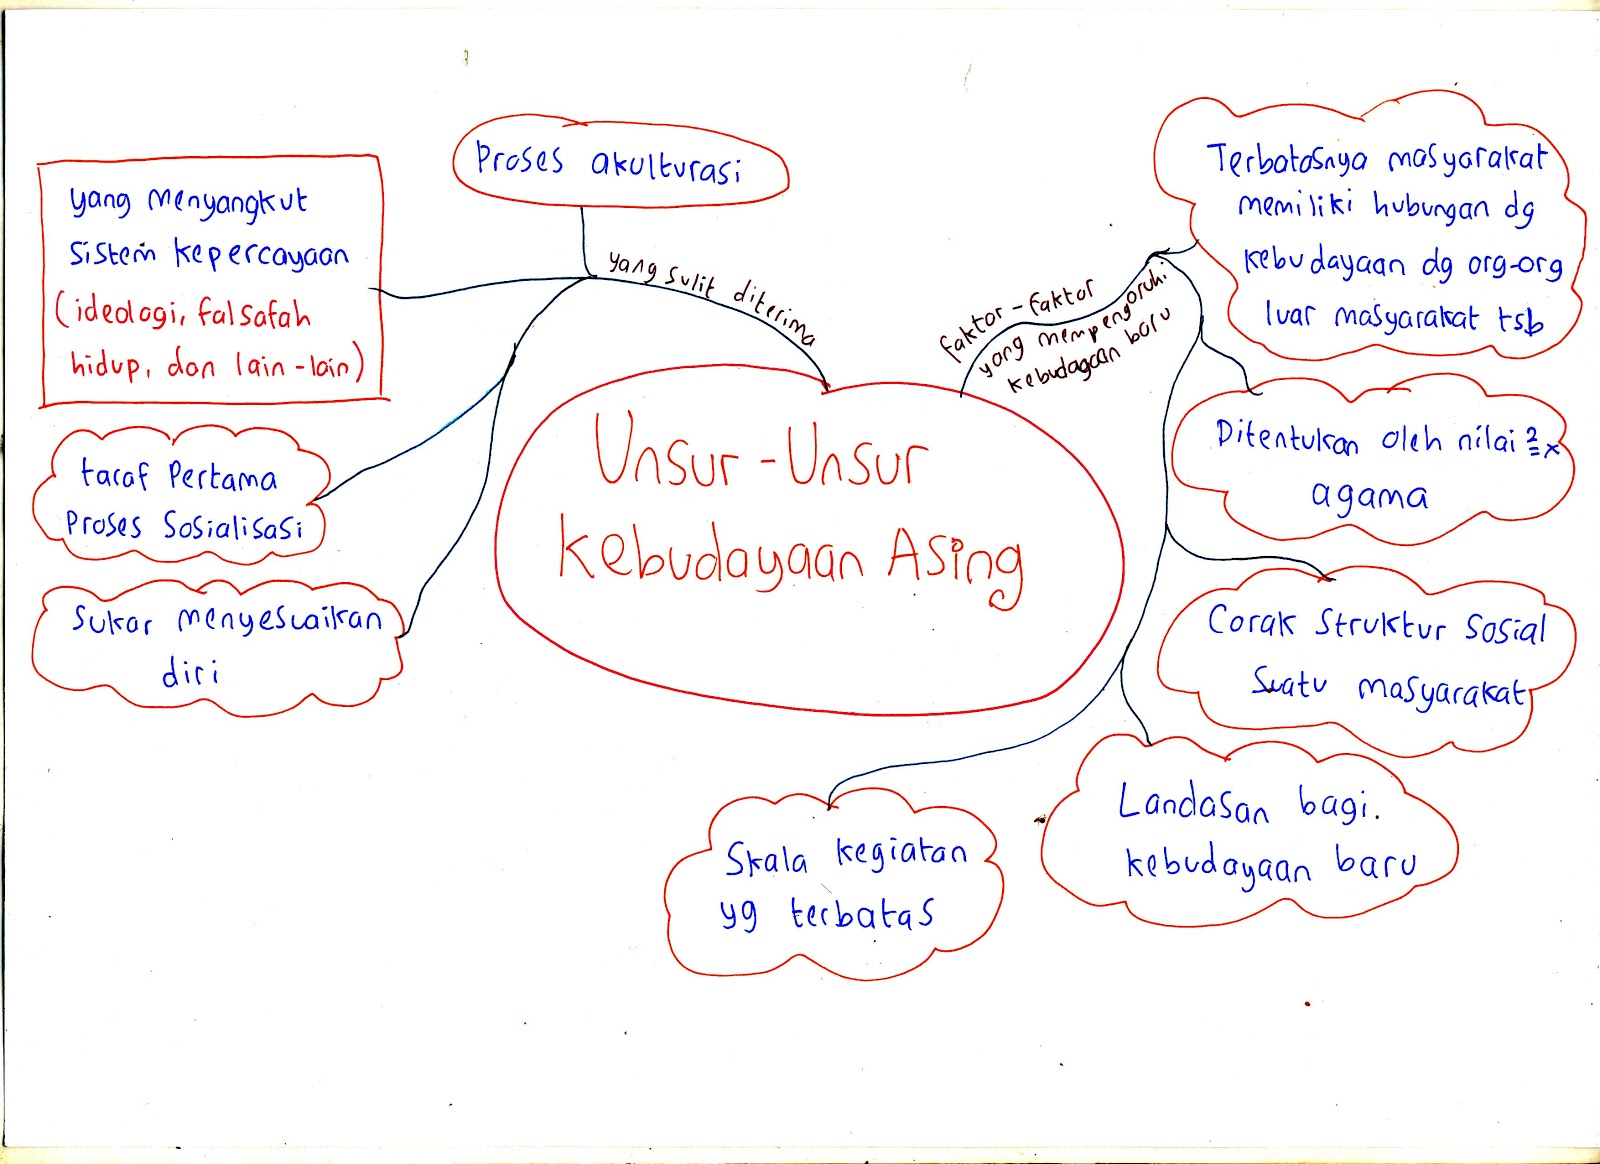 Proses akulturasi
yang menyangkut
sistem kepercayaan
(ideologi, falsafah
hidup, dan lain-lain)
taraf Pertama
Proses Sosialisasi
Sukar menyesuaikan
diri
yang sulit diterima
Unsur-Unsur
Kebudayaan Asing
faktor-faktor
yang mempengaruhi
kebudayaan baru
Terbatasnya masyarakat
memiliki hubungan dg
kebudayaan dg org-org
luar masyarakat tsb
Ditentukan oleh nilai 2x
agama
Corak Struktur Sosial
Suatu masyarakat
Landasan bagi.
kebudayaan baru
Skala kegiatan
yg terbatas